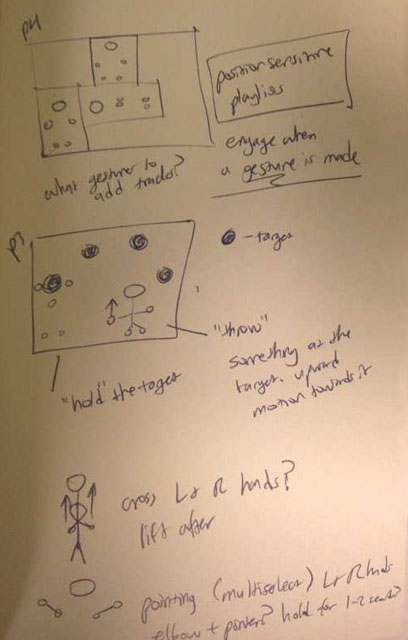 P4
position sensitive
playlists
engage when
a gesture is made
what gesture to
add tracks?
P5
- target
"throw"
something at the
target. upward
motion towards it
"hold" the target
cross L & R hands?
lift after
pointing (multiselect) L & R hands
elbow + pointers? hold for 1-2 secs?